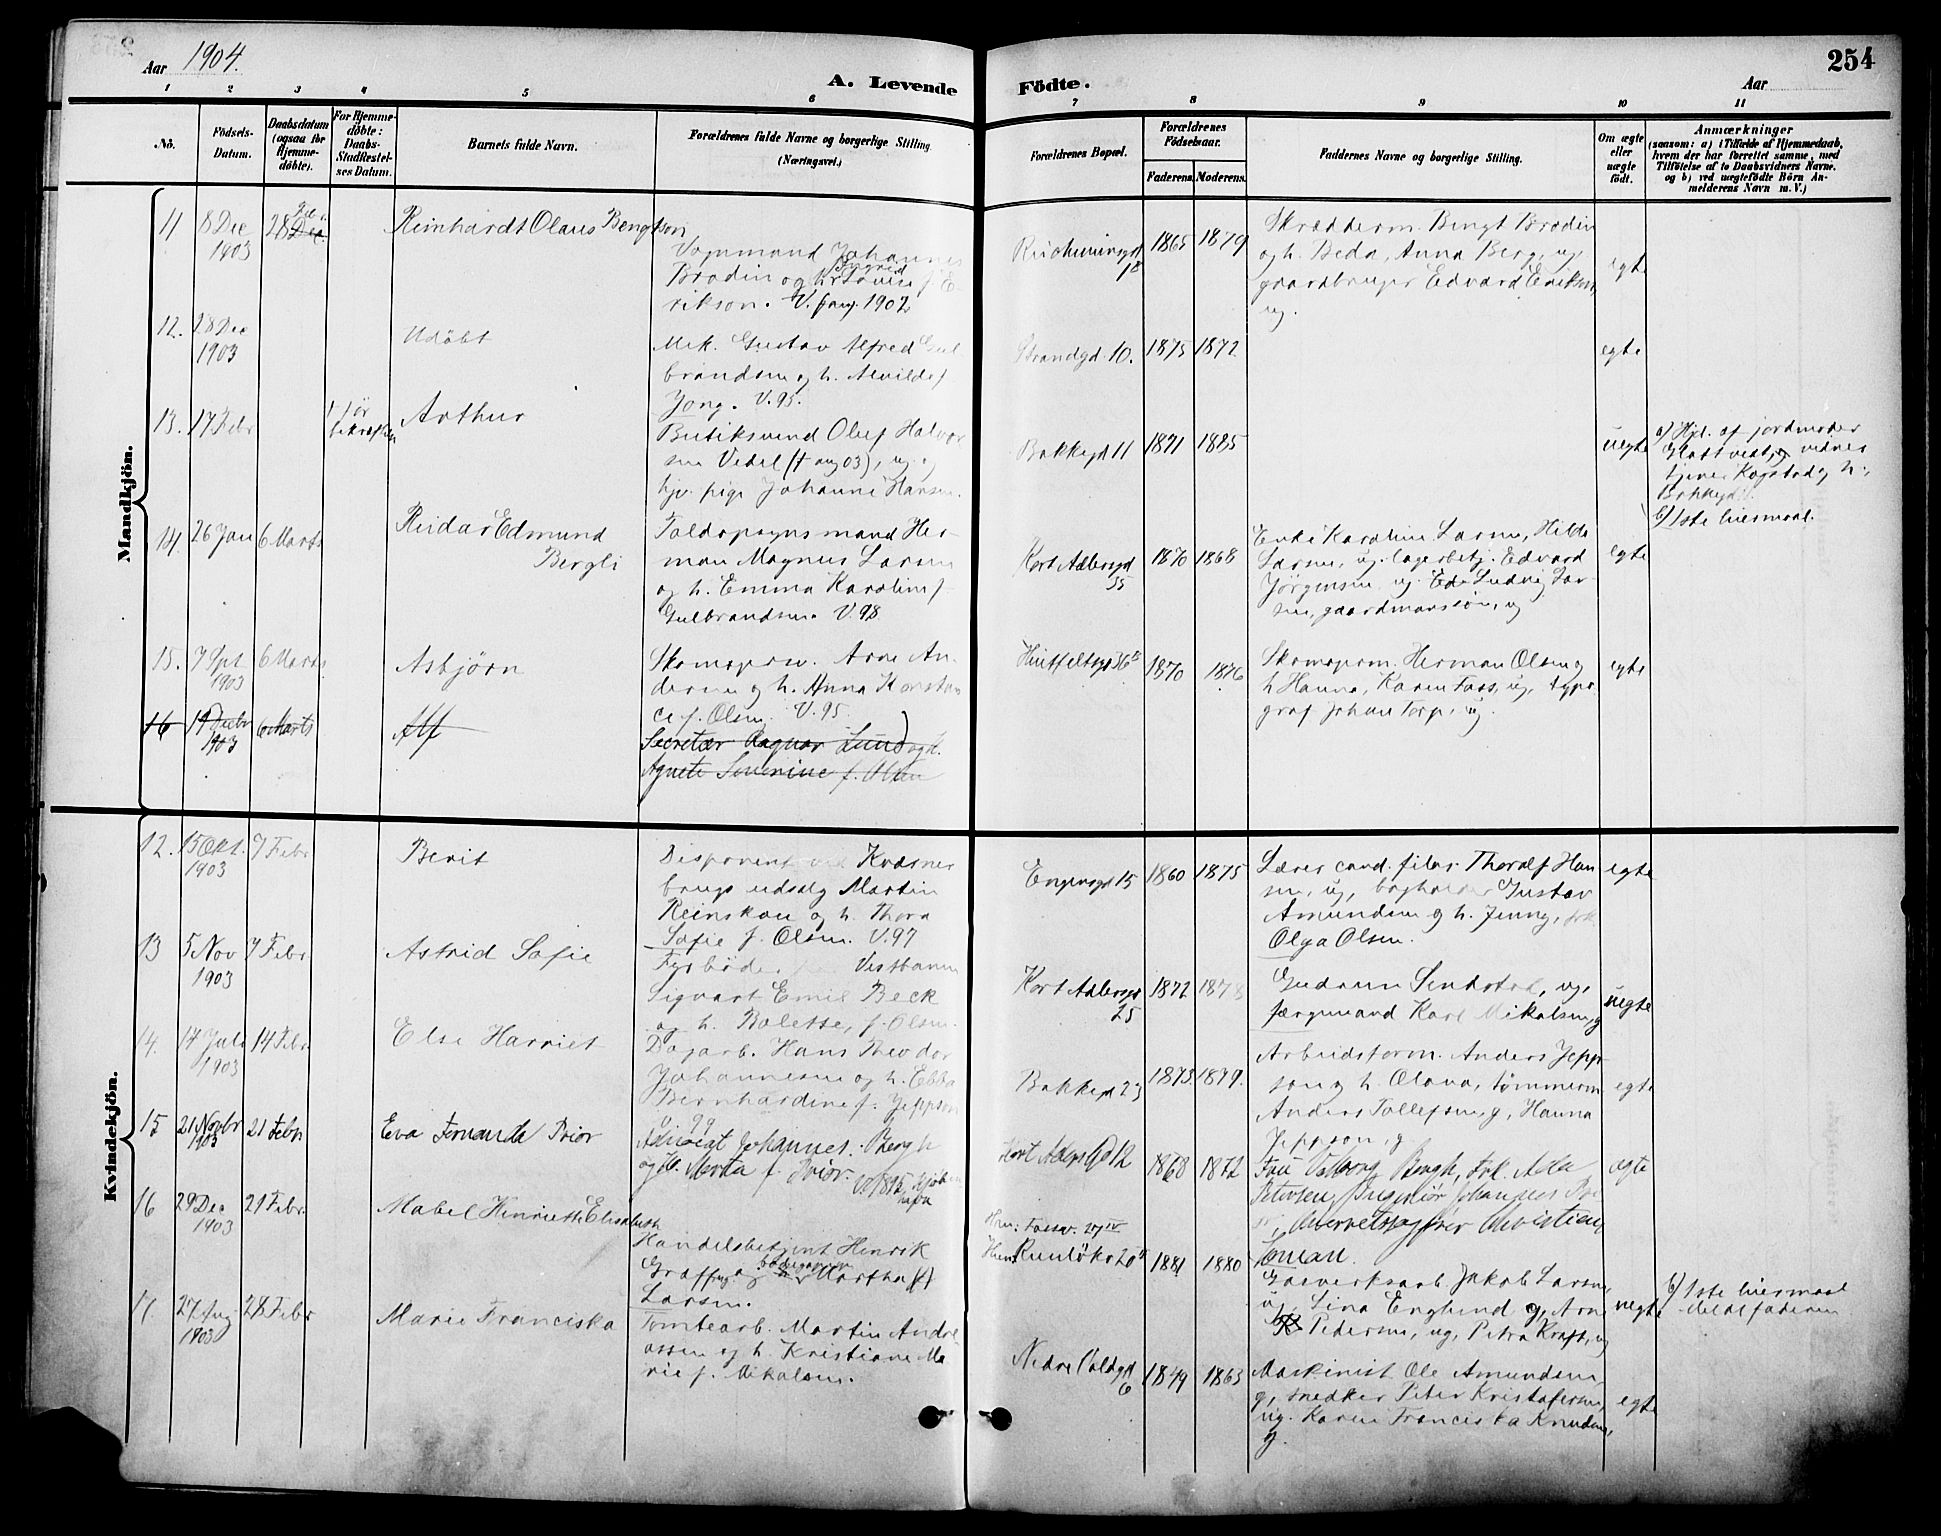 Aar 1904.
A. Levende
Födte.
Aar
254
1
2
3
4
5
6
7
8
9
10
11
No.
Födsels-
Datum.
Daabsdatum
(ogsaa for
Hjemme-
döbte).
For Hjemme-
döbte:
Daabs-
Stadfæstel-
ses Datum.
Barnets fulde Navn.
Forældrenes fulde Navne og borgerlige Stilling
(Næringsvei.)
Forældrenes Bopæl.
Forældrenes
Födselsaar.
Faderens.
Moderens.
Faddernes Navne og borgerlige Stilling.
Om ægte
eller
uægte
födt.
Anmærkninger
(saasom: a) i Tilfælde af Hjemmedaab,
hvem der har forrettet samme, med
Tilföielse af to Daabsvidners Navne,
og b) ved uægtefödte Börn An-
melderens Navn m. V.)
Mandkjön.
11
8 Dec
1903
28 Dec.
Reinhardt Olaus Bengtson
Vognmand Johannes
Brodin og h. Louise f. E
Ingrid
rikson. V. jan. 1902
18
1865
1879
Skrædderm. Bengt Brodin
og h. Beda, Anna Berg, ug
gaardbruger Edvard Erikson,
ug.
egte
12.
28 Dec
1903
Udöbt
Mek. Gustav Alfred Gul
brandsen og h. Alvilde f.
Jong. V. 95.
Strandgd 10.
1875
1872
egte
13.
17 Febr
Arthur
Butiksvend Oluf Halvor
sen Vedel († aug 03), ug. og
tjv. pige Johanne Hansen.
Bakkegd 11
1871
1885
uegte
a) Hjd. af jordmoder
vidner
tjener Rogstad og h.
Bakkegd
b) 1ste leiermaal.
14.
26 Jan
6 Marts
Reidar Edmund
Bergli
Toldopsynsmand Her-
man Magnus Larsen
og h. Emma Karoline f.
Gulbrandsen. V. 98
Kort Adlersgd
35
1870
1868
Enke Karoline Larsen, Hilda
Larsen, ug. lagerbetj. Edvard
Jörgensen ug. Ludvig Lar-
sen, gaardmanssön, ug
egte
15.
7 Spt
1903
6 Marts
Asbjörn
Skomagersv. Arne An-
dersen og h. Anna Konstan
ce f. Olsen. V. 95.
Huitfeltsgd 16
1870
1876
Skomagerm. Herman Olsen og
h Hanna, Karen Foss, ug, typo-
graf Johan Torp, ug.
egte
16
19 Decbr
1903
6 Marts
Alf
Secretær Ragnar Lund og h.
Agnete Severine f. Olsen
Kvindekjön.
12.
15 Okt.
1903
7 Febr
Berit
Disponent ved Kværner
brugs udsalg Martin
Reinskou og h. Thora
Sofie f. Olsen. V. 97
Engensgd 15
1860
1875
Lærer cand. filos. Thoralf Han
sen, ug, bogholder Gustav
Amundsen og h. Jenny, frk.
Olga Olsen.
egte
13
5 Nov
1903
7 Febr
Astrid Sofie
Fyrböder Vestbanen
Sigvart Emil Beck
og h. Bolette, f. Olsen.
Kort Adlersgd
25
1872
1878
Gudrun Sendstad, ug,
færgemand Karl Mikalsen, g
uegte
14.
17 Juli
1903
14 Febr.
Else Harriet
Dagarb. Hans Theodor
Johannesen og h. Ebba
Bernhardine f. Jeppson
V. 99
Bakkegd 23
1873.
1879.
Arbeidsform. Anders Jepp
son og h. Olava, tömmerm
Anders Tollefsen, g, Hanna
Jeppson, g
egte
15
21 Novbr
1903
21 Febr
Eva Fernanda Prior
Advocat Johannes Bergh
og H. Merta f. Prior.
V. 1895 Kjöben
havn
Kort Adlers Gd 12
1868
1872
Fru Valborg Bergh, Frk. Ada
Petersen, Ingeniör Johannes Pri-
or, Overretssagförer Christian
Loman.
ægte
16
29 Dec
1903
21 Febr.
Mabel Henriette Elisabeth
Handelsbetjent Henrik
Graff ug og Martha (f)
Larsen.
1881
1880
Gasverksarb. Jakob Larsen,
ug, Lina Englund g, Arne
Pedersen, ug, Petra Kraft, ug
uegte
b) 1ste leiermaal
Meldt faderen
17
27 Aug
1903
28 Febr
Marie Franciska
Tomtearb. Martin Andre
assen og h. Kristiane Ma
rie f. Mikalsen.
Nedre Voldgd
6
1849
1863
Maskinist Ole Amundsen,
g, snedker Peter Kristofersen,
ug. Karen Franciska Knudsen,
g.
egte